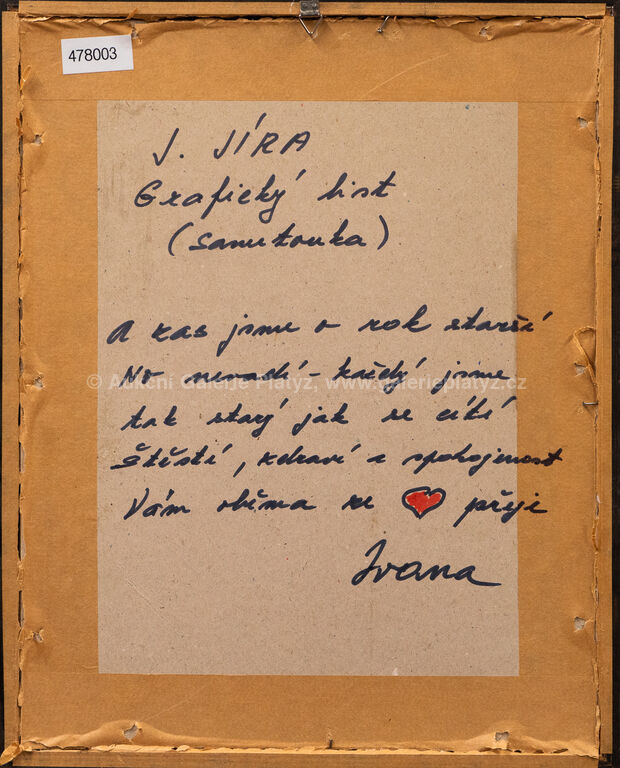 478003
J. JÍRA
Grafický list
(samutouka)
A zas jsme o rok starší
No nevadí - každý jsme
© Aukční Galerie Platýz, www.galerieplatyz.cz
tak starý jak se cítí
Štěstí, zdraví a spokojenost
Vám oběma ze přeje
Ivana